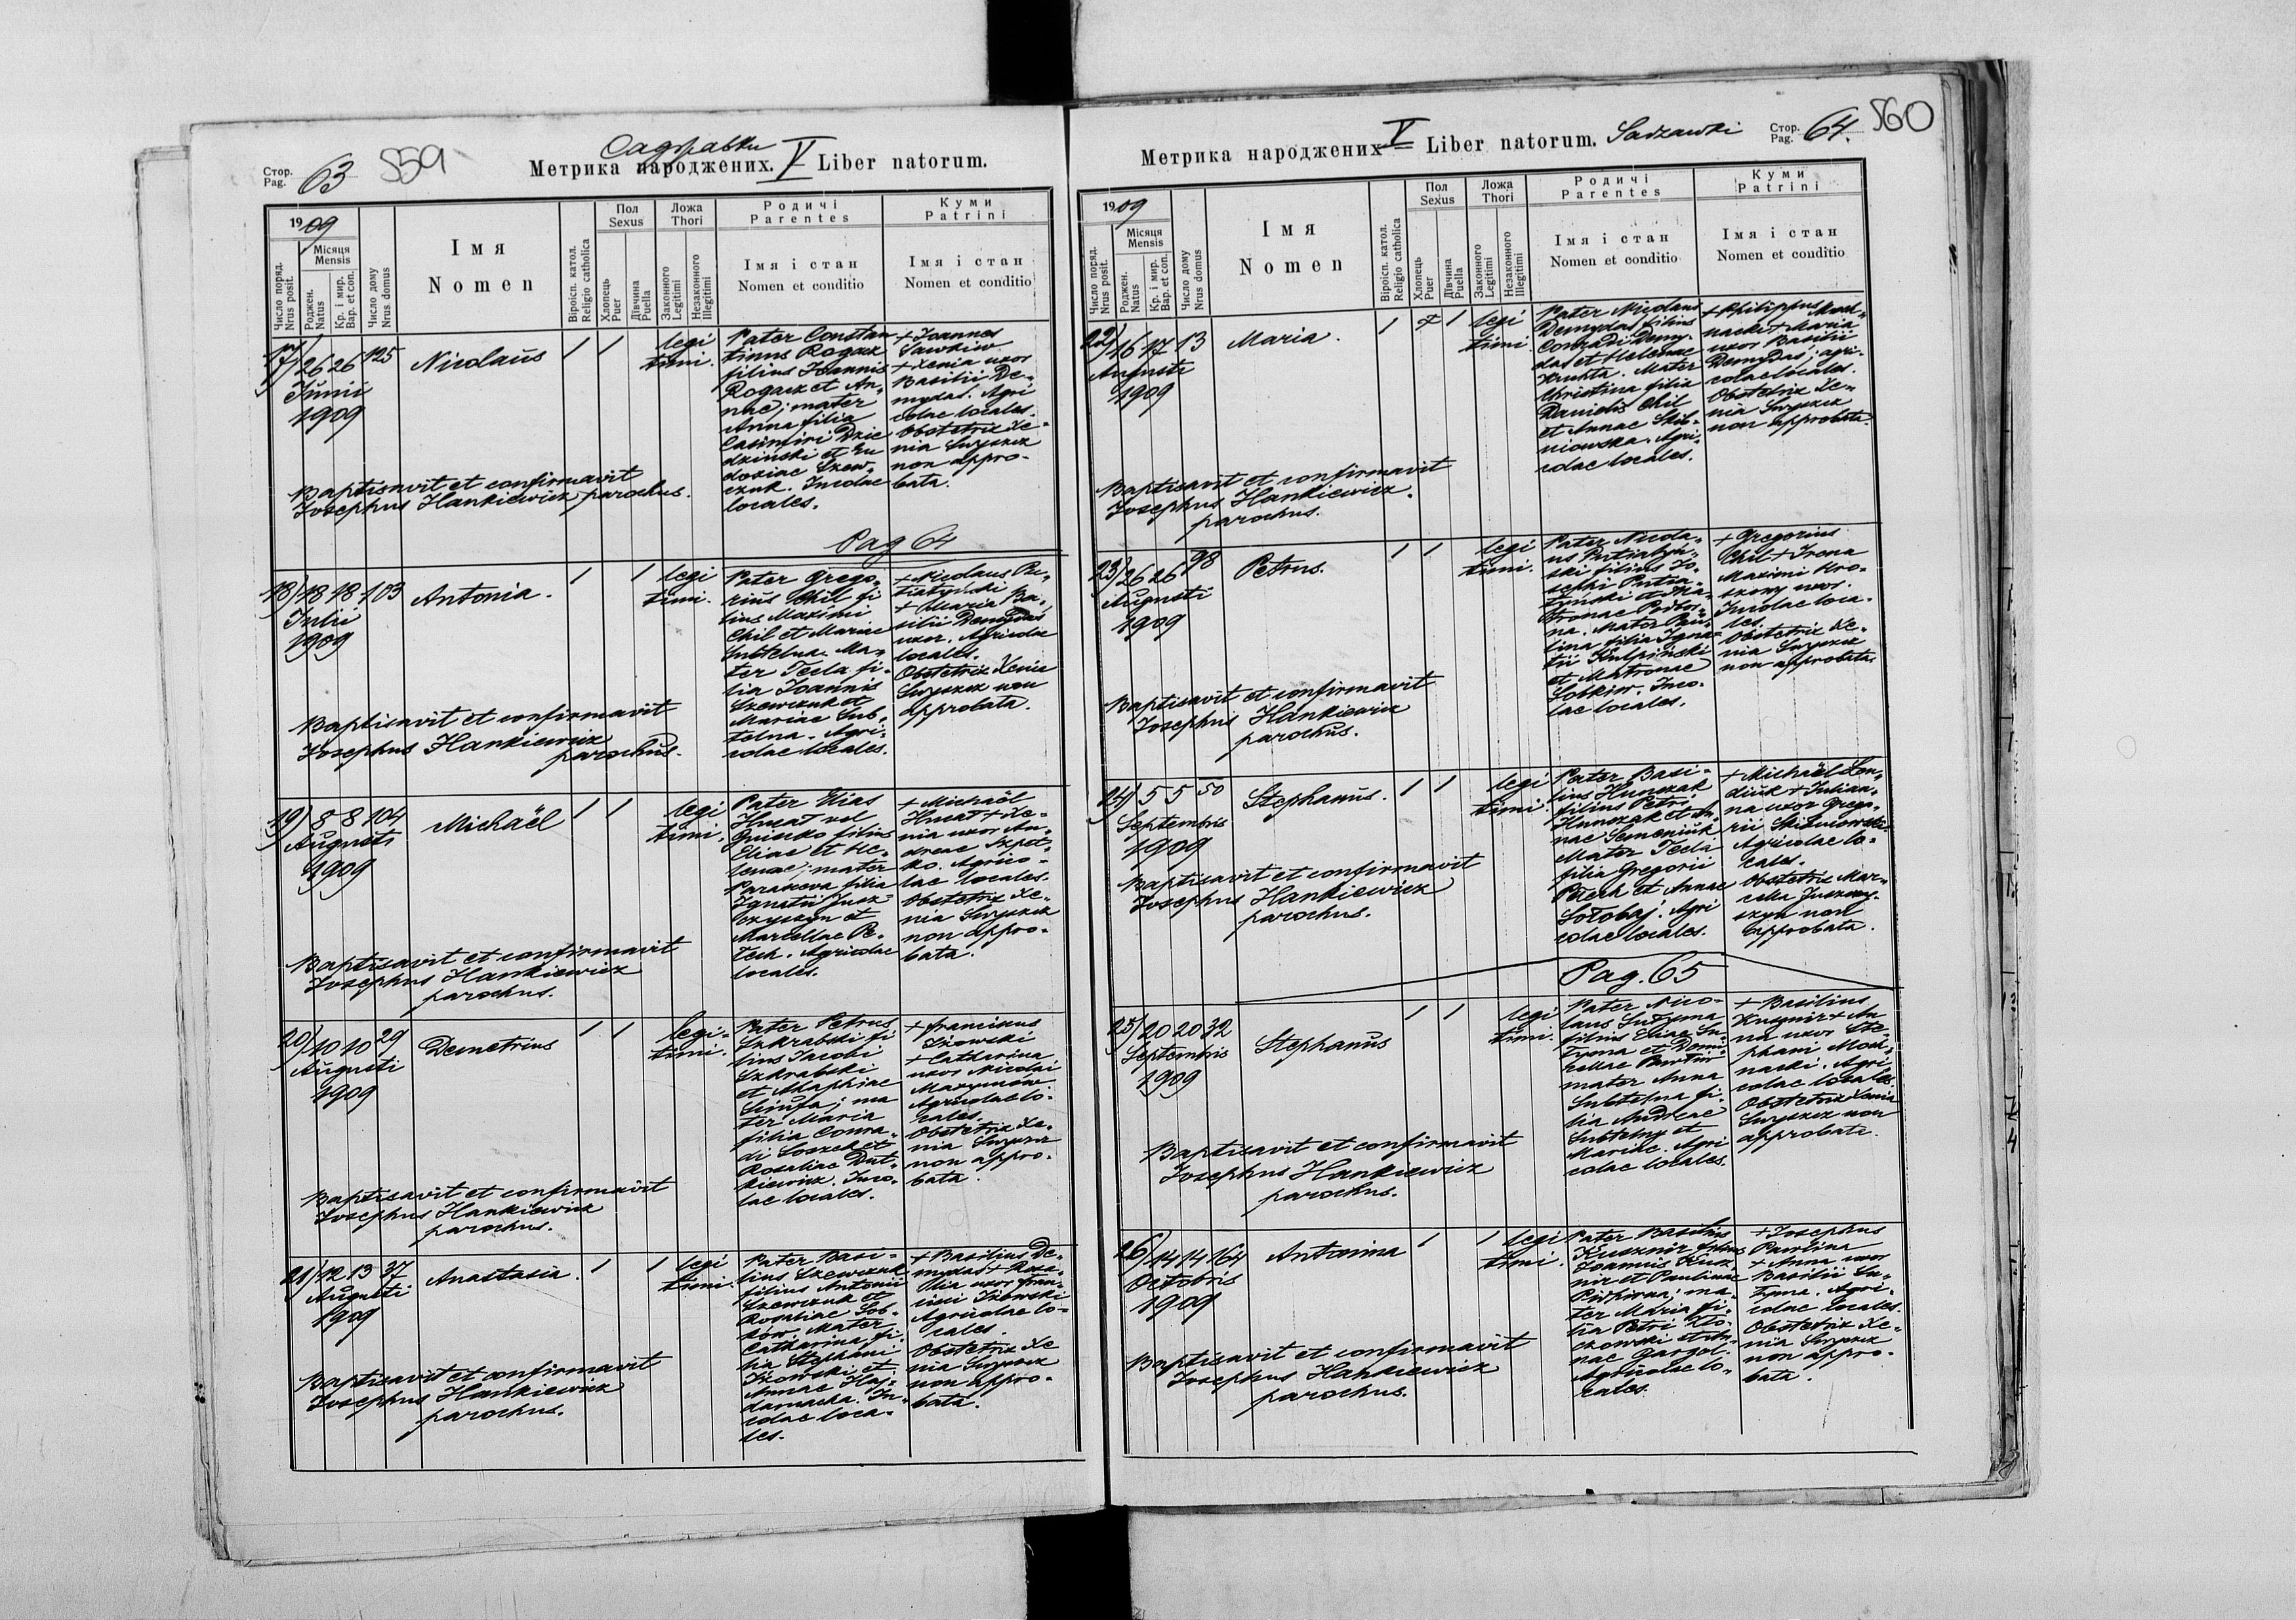 Стор.
Pag. 63 559
Садзавки
Метрика народжених. V Liber natorum.
1909
Місяця
Mensis
Число поряд.
Nrus posit.
Роджен.
Natus
Кр. і мир.
Bap. et con.
Число дому
Nrus domus
Імя
Nomen
Віроісп. катол.
Religio catholica
Пол
Sexus
Хлопець
Puer
Дівчина
Puella
Ложа
Thori
Законного
Legitimi
Незаконного
Illegitimi
Родичі
Parentes
Імя і стан
Nomen et conditio
Куми
Patrini
Імя і стан
Nomen et conditio
17) 26 26 125 Nicolaus 1 1 legi
timi.
Junii
1909
Pater Constan
tinus Rogacz
filius Joannis
Rogacz et An-
nae; mater
Anna filia
Casimiri Dzie
dzinski et Eu
doxiae Szew-
czuk. Incolae
locales.
+ Joannes
Sawkiw
+ Xenia uxor
Basilii De-
mydas. Agri
colae locales.
Obstetrix Xe-
nia
non appro-
bata.
Baptisavit et confirmavit
Josephus Hankiewicz parochus.
Pag 64
18) 18 18 103 Antonia. 1 1 legi
timi.
Julii
1909
Pater Grego-
rius Chil fi
lius Maximi
Chil et Mariae
Subtelna. Ma-
ter Tecla fi-
lia Joannis
Szewczuk et
Mariae Sub-
telna. Agri-
colae locales.
+ Nicolaus Pu-
tiatyński
+ Maria Ba-
silii Demydas
uxor. Agricolae
locales.
Obstetrix Xenia
non
approbata.
Baptisavit et confirmavit
Josephus Hankiewicz
parochus.
19) 8 8 104 Michaël 1 1 legi
timi.
Augusti
1909
Pater Elias
Hnat vel
filius
Eliae et He-
lenae; mater
Parasceva filia
Ignatii Jusz
czyszyn et
Marcellae Pe-
tech. Agricolae
locales.
+ Michaël
Hnat + Xe-
nia uxor An-
dreae Szpet-
ko. Agrico-
lae locales.
Obstetrix Xe-
nia
non appro-
bata.
Baptisavit et confirmavit
Josephus Hankiewicz
parochus.
20) 10 10 29 Demetrius 1 1 legi-
timi.
Augusti
1909
Pater Petrus
Szkrabski fi
lius Jacobi
Szkrabski
et Agaphiae
ma
ter Maria
filia Conra-
di Soszek et
Rosaliae Dut-
kiewicz. Inco-
lae locales.
+ Franciscus
Iżowski
+ Catharina
uxor Nicolai
Maxymów
Agricolae lo-
cales.
Obstetrix Xe-
nia
non appro-
bata.
Baptisavit et confirmavit
Josephus Hankiewicz
parochus.
21) 12 13 37 Anastasia. 1 1 legi
timi.
Augusti
1909
Pater Basi-
lius Szewczuk
filius Antonii
Szewczuk et
Rosaliae Sob-
ków. Mater
Catharina fi-
lia Stephani
Iżowski et
Annae Haj-
damacha. In-
colae loca-
les.
+ Basilius De-
mydas + Rosa-
lia uxor Fran-
cisci Iżowski
Agricolae lo-
cales.
Obstetrix Xe
nia
non appro-
bata.
Baptisavit et confirmavit
Josephus Hankiewicz
parochus.
Метрика народжених V Liber natorum. Sadzawki
Стор.
Pag. 64. 560
1909
Місяця
Mensis
Число поряд.
Nrus posit.
Роджен.
Natus
Кр. і мир.
Bap. et con.
Число дому
Nrus domus
Імя
Nomen
Віроісп. катол.
Religio catholica
Пол
Sexus
Хлопець
Puer
Дівчина
Puella
Ложа
Thori
Законного
Legitimi
Незаконного
Illegitimi
Родичі
Parentes
Імя і стан
Nomen et conditio
Куми
Patrini
Імя і стан
Nomen et conditio
22) 16 17 13 Maria. 1 1 legi
timi.
Augusti
1909
Pater Nicolaus
Demydas filius
Conradi Demy-
das et Helenae
Kruhta. Mater
Christina filia
Danielis Chil
et Annae Skib-
niowska. Agri-
colae locales.
+ Philippus
+ Maria
uxor Basilii
Demydas; agri-
colae locales.
Obstetrix Xe-
nia
non approbata.
Baptisavit et confirmavit
Josephus Hankiewicz.
parochus.
23) 26 26 98 Petrus. 1 1 legi
timi.
Augusti
1909
Pater Nicola-
us Putiatyń-
ski filius Jo-
sephi Putia-
tynski et Ma-
tronae
na. Mater Pau-
lina filia Igna-
tii Kulpiński
et Matronae
Sobkiw. Inco-
lae locales.
+ Gregorius
Chil + Irena
Maximi
uxor.
Incolae loca-
les.
Obstetrix Xe-
nia
non approbata.
Baptisavit et confirmavit
Josephus Hankiewicz
parochus.
24) 5 5 50 Stephanus. 1 1 legi
timi.
Septembris
1909
Pater Basi-
lius Hunczak
filius Petri
Hunczak et An-
nae Semeniuk
Mater Tecla
filia Gregorii
Petech et Annae
Sołobaj. Agri
colae locales.
+ Michaël
+ Julian-
na uxor Grego-
rii Skibniowski.
Agricolae lo-
cales.
Obstetrix Mar-
cella Juszczy-
szyn non
approbata.
Baptisavit et confirmavit
Josephus Hankiewicz
parochus.
Pag. 65
25) 20 20 32 Stephanus 1 1 legi
timi.
Septembris
1909
Pater Nico-
laus Sutyma
filius Eliae Su-
tyma et Domi-
cellae
mater Anna
Subtelna fi-
lia Andreae
Subtelny et
Mariae. Agri
colae locales.
+ Basilius
Kusznir + An
na uxor Ste-
phani
Agri-
colae locales.
Obstetrix Xenia
non
approbata.
Baptisavit et confirmavit
Josephus Hankiewicz
parochus.
26) 14 14 164 Antonina 1 1 legi
timi.
Octobris
1909
Pater Basilius
Kusznir filius
Joannis Kusz
nir et Paulinae
ma-
ter Maria fi-
lia Petri
et An-
nae
Agricolae lo-
cales.
+ Josephus
Pawlina
+ Anna uxor
Basilii Su-
tyma. Agri-
colae locales.
Obstetrix Xe-
nia
non appro-
bata.
Baptisavit et confirmavit
Josephus Hankiewicz
parochus.